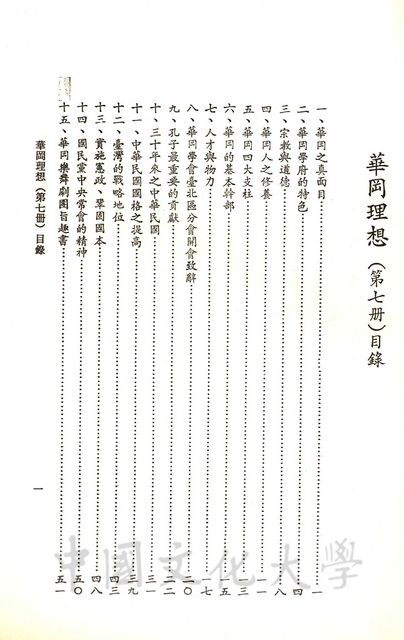 華岡理想（第七册）目錄
一、華岡之真面目……一
二、華岡學府的特色……四
三、宗教與道德……八
四、華岡人之修養……一一
五、華岡四大支柱……一三
六、華岡的基本幹部……一五
七、人才與物力……一七
八、華岡學會臺北區分會開會致辭……二〇
九、孔子最重要的貢獻……二二
十、三十年來之中華民國……三一
十一、中華民國國格之提高……三九
十二、臺灣的戰略地位……四三
十三、實施憲政、鞏固國本……四八
十四、國民黨中央常會的精神……五〇
十五、華岡樂舞劇團旨趣書……五一
華岡理想（第七册）目錄
一
中國文化大學